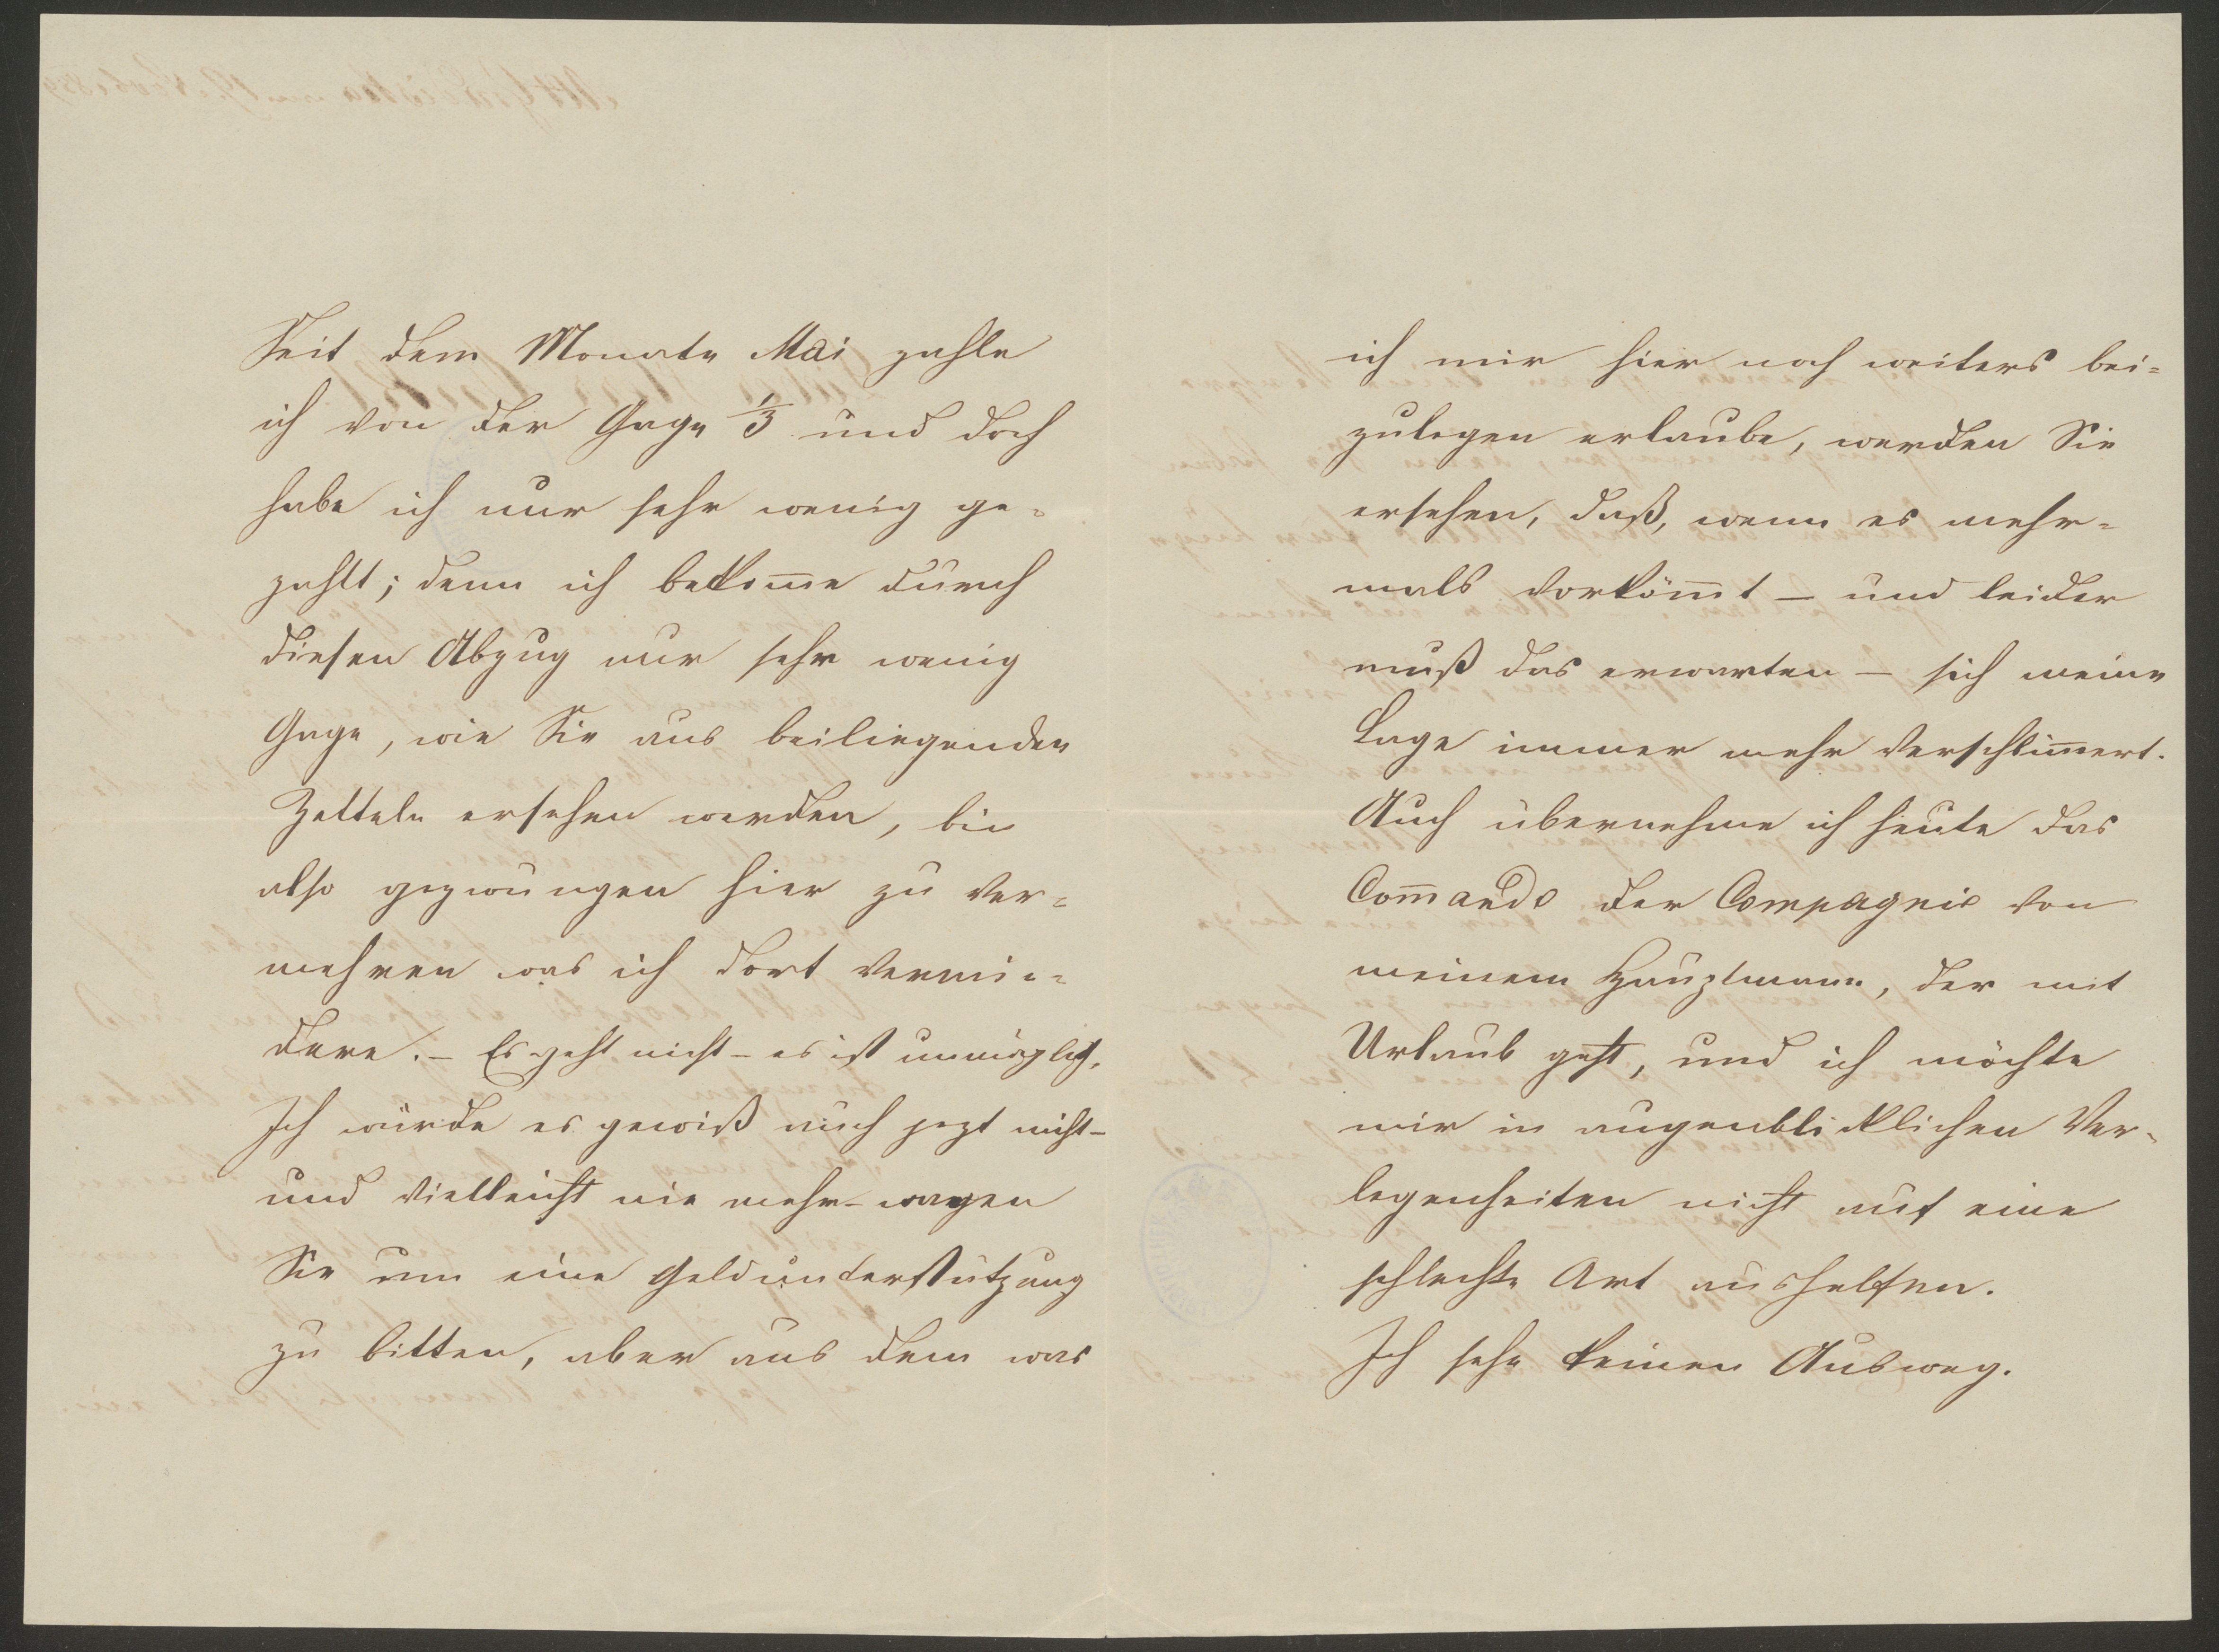 Seit dem Monate Mai zahle
ich von der Gage 1/3 und doch
habe ich nur sehr wenig ge=
zahlt; denn ich bekom̄e durch
diesen Abzug nur sehr wenig
Gage, wie Sie aus beiliegenden
Zetteln ersehen werden, bin
also gezwungen hier zu ver=
mehren was ich dort vermin=
dere. – Es geht nicht – es ist unmöglich.
Ich würde es gewiß auch jezt nicht –
und vielleicht nie mehr – wagen
Sie um eine Geldunterstützung
zu bitten, aber aus dem was
ich mir hier noch weiters bei=
zulegen erlaube, werden Sie
ersehen, daß, wenn es mehr=
mals vorköm̄t – und leider
muß das erwarten – sich meine
Lage immer mehr verschlim̄ert.
Auch übernehme ich heute das
Com̄ando der Compagnie von
meinem Hauptmann, der mit
Urlaub geht, und ich möchte
mir in augenblicklichen Ver=
legenheiten nicht auf eine
schlechte Art aushelfen.
Ich sehe keinen Ausweg.